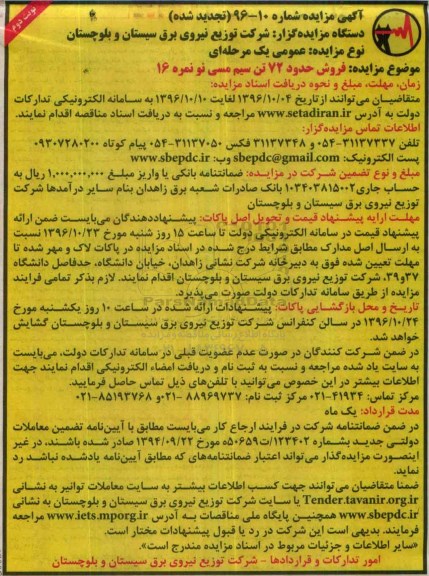 نوبت دوم
آگهی مزایده شماره ۱۰-۹۶ (تجدید شده)
دستگاه مزایده‌گزار: شرکت توزیع نیروی برق سیستان و بلوچستان
نوع مزایده: عمومی یک مرحله‌ای
موضوع مزایده: فروش حدود ۷۲ تن سیم مسی نو نمره ۱۶
زمان، مهلت، مبلغ و نحوه دریافت اسناد مزایده:
متقاضیان می‌توانند از تاریخ ۱۳۹۶/۱۰/۰۴ لغایت ۱۳۹۶/۱۰/۱۰ به سامانه الکترونیکی تدارکات
دولت به آدرس www.setadiran.ir مراجعه و نسبت به دریافت اسناد مناقصه اقدام نمایند.
اطلاعات تماس مزایده‌گزار:
تلفن ۳۱۱۳۷۳۳۷-۰۵۴ و ۳۱۱۳۷۳۴۸ فکس ۳۱۱۳۷۰۵۰-۰۵۴ پیام کوتاه ۰۹۳۰۷۲۸۰۲۰۰
پست الکترونیک: sbepdc@gmail.com وب: www.sbepdc.ir
مبلغ و نوع تضمین شرکت در مزایده: ضمانتنامه بانکی یا واریز مبلغ ۱,۰۰۰,۰۰۰,۰۰۰ ریال به
حساب جاری ۱۰۳۴۰۳۸۱۵۰۰۲ بانک صادرات شعبه برق زاهدان بنام سایر درآمدها شرکت
توزیع نیروی برق سیستان و بلوچستان
مهلت ارایه پیشنهاد قیمت و تحویل اصل پاکات: پیشنهاددهندگان می‌بایست ضمن ارائه
پیشنهاد قیمت در سامانه الکترونیکی دولت تا ساعت ۱۵ روز شنبه مورخ ۱۳۹۶/۱۰/۲۳ نسبت
به ارسال اصل مدارک مطابق شرایط درج شده در اسناد مزایده در پاکات لاک و مهر شده تا
مهلت تعیین شده فوق به دبیرخانه شرکت نشانی زاهدان، خیابان دانشگاه، حدفاصل دانشگاه
۳۷و۳۹، شرکت توزیع نیروی برق سیستان و بلوچستان اقدام نمایند. لازم بذکر تمامی فرایند
مزایده از طریق سامانه تدارکات دولت صورت می‌پذیرد.
تاریخ و محل بازگشایی پاکات: پیشنهادات ارائه شده در ساعت ۱۰ روز یکشنبه مورخ
۱۳۹۶/۱۰/۲۴ در سالن کنفرانس شرکت توزیع نیروی برق سیستان و بلوچستان گشایش
خواهد شد.
در ضمن شرکت کنندگان در صورت عدم عضویت قبلی در سامانه تدارکات دولت، می‌بایست
به سایت یاد شده مراجعه و نسبت به ثبت نام و دریافت امضاء الکترونیکی اقدام نمایند جهت
اطلاعات بیشتر در این خصوص می‌توانید با تلفن‌های ذیل تماس حاصل فرمایید.
مرکز تماس: ۴۱۹۳۴-۰۲۱ مرکز ثبت نام: ۸۸۹۶۹۷۳۷-۰۲۱ و ۸۵۱۹۳۷۶۸-۰۲۱
مدت قرارداد: یک ماه
در ضمن ضمانتنامه شرکت در فرایند ارجاع کار می‌بایست مطابق با آیین‌نامه تضمین معاملات
دولتی جدید بشماره ۱۲۳۴۰۲/ت۵۰۶۵۹ه مورخ ۱۳۹۴/۰۹/۲۲ صادر شده باشند، در غیر
اینصورت مزایده‌گذار می‌تواند اعتبار ضمانتنامه‌های که مطابق آیین‌نامه یادشده نباشد رد
نماید.
ضمنا متقاضیان می‌توانند جهت کسب اطلاعات بیشتر به سایت معاملات توانیر به نشانی
Tender.tavanir.org.ir یا سایت شرکت توزیع نیروی برق سیستان و بلوچستان به نشانی
www.sbepdc.ir همچنین پایگاه ملی مناقصات به آدرس www.iets.mporg.ir مراجعه
فرمایند. بدیهی است این شرکت در رد یا قبول پیشنهادات مختار است.
«سایر اطلاعات و جزئیات مربوط در اسناد مزایده مندرج است».
امور تدارکات و قراردادها - شرکت توزیع نیروی برق سیستان و بلوچستان